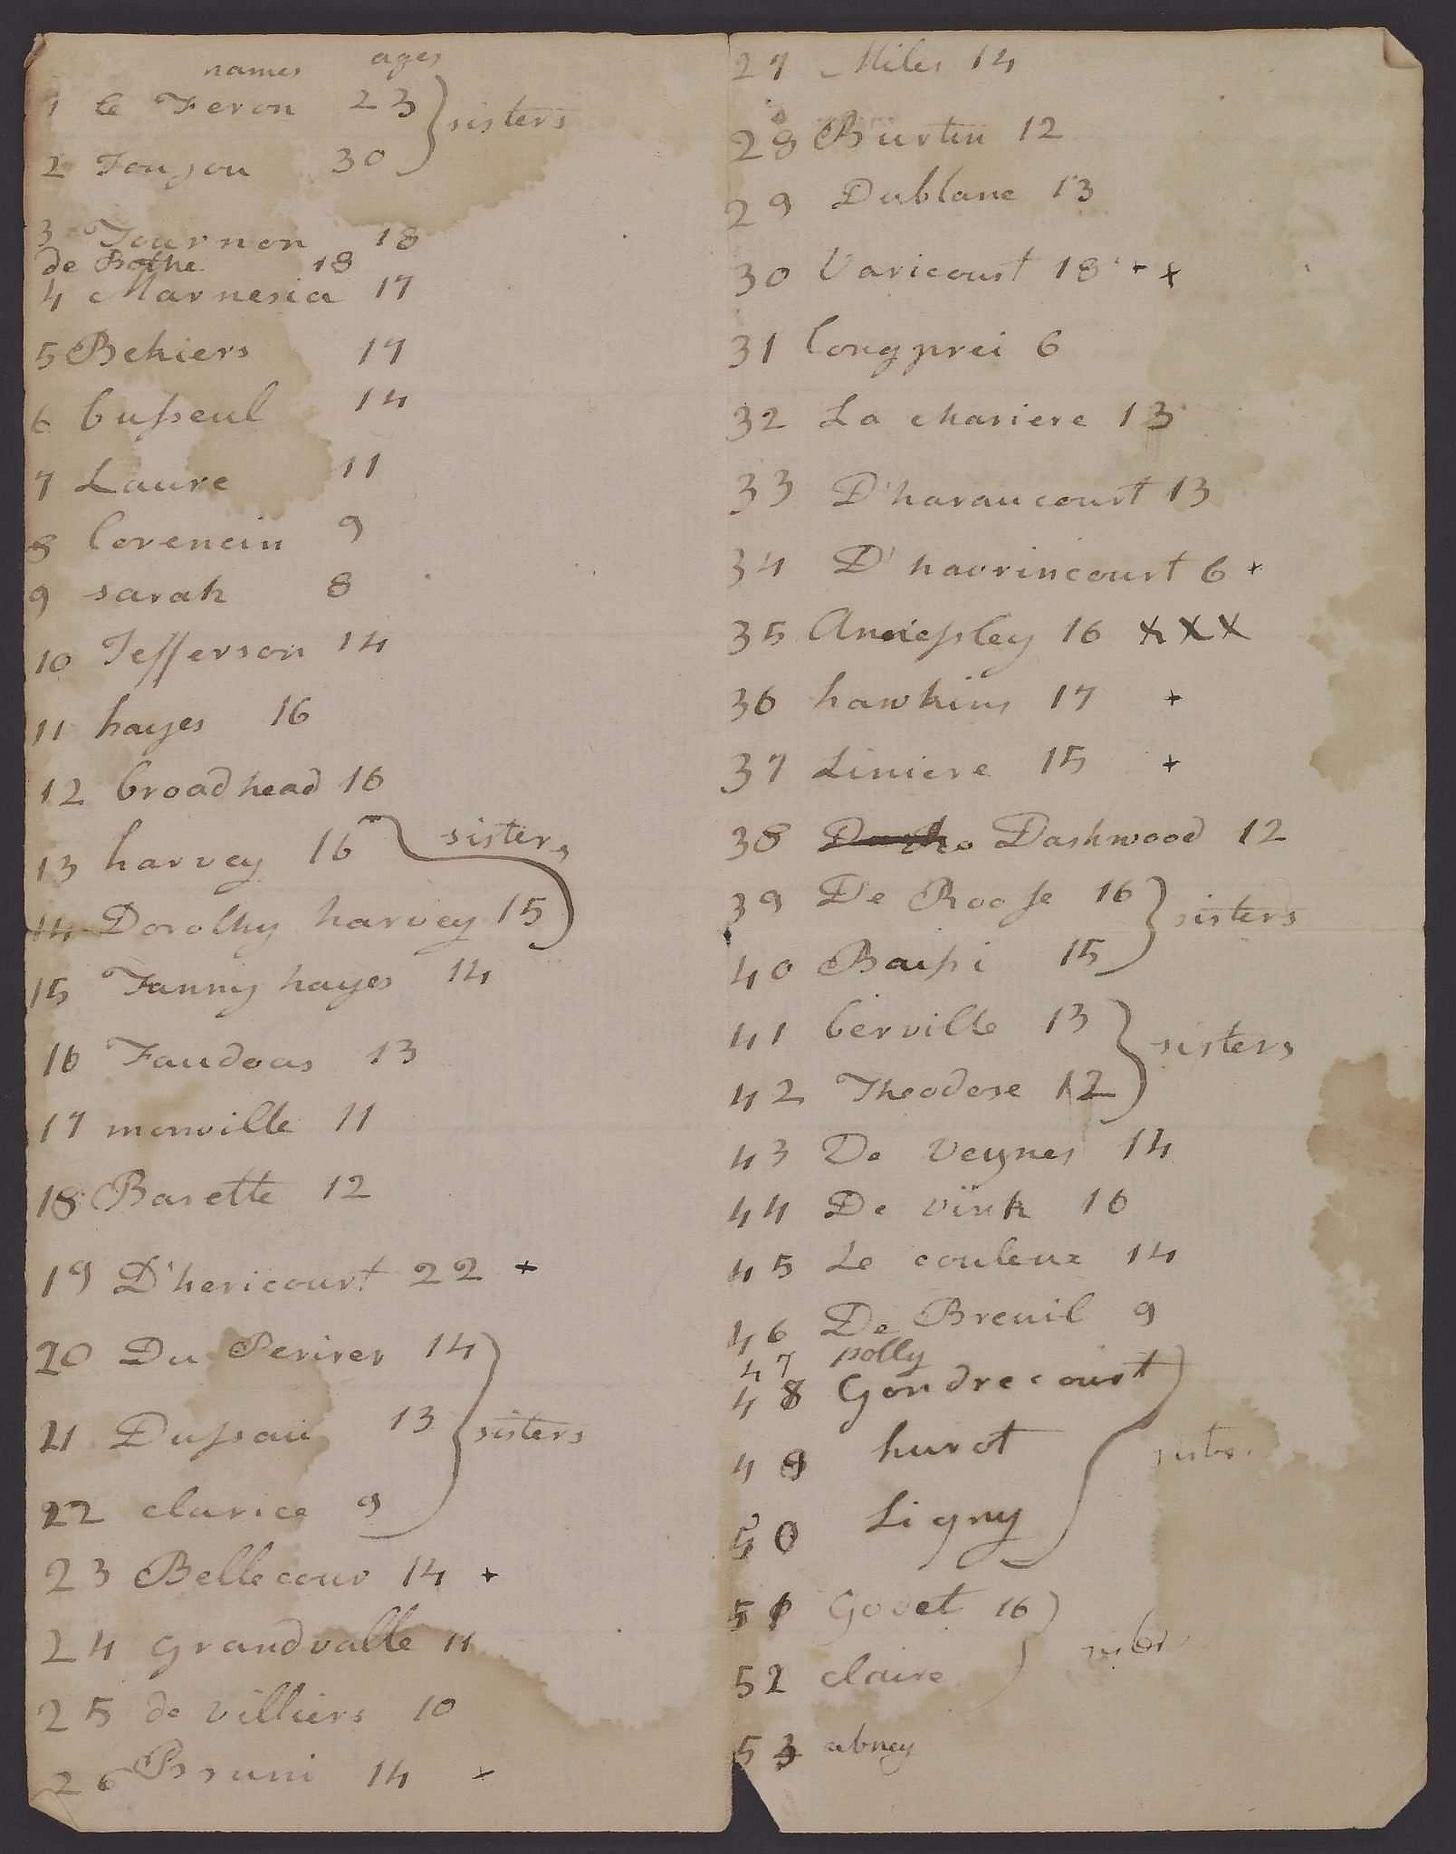 names ages
1 le Feron 23 } sisters
2 Foujou 30
3 Tournon 18
de Bothe 18
4 Marnesia 17
5 Behiers 17
6 Cusseul 14
7 Laure 11
8 Corencin 9
9 sarah 8
10 Jefferson 14
11 hayes 16
12 broadhead 16
13 harvey 16 } sisters
14 Dorothy harvey 15
15 Fanny hayes 14
16 Faudoas 13
17 monville 11
18 Basette 12
19 D'hericourt 22 +
20 Du Perirer 14
21 Dussaii 13 } sisters
22 clarice 9
23 Bellecour 14 +
24 grandvalle 11
25 de villiers 10
26 Bruni 14 +
27 Miles 14
28 Burtin 12
29 Dublane 13
30 Varicourt 18 + +
31 Longprei 6
32 La chariere 13
33 D'haraucourt 13
34 D'havrincourt 6 +
35 Anniesley 16 x x x
36 hawkins 17 +
37 Liniere 15 +
38 Dashwood 12
39 De Roose 16 } sisters
40 Baissi 15
41 Cerville 13 } sisters
42 Theodore 12
43 De Veynes 14
44 De vink 16
45 Le couleux 14
46 De Breuil 9
47 polly
48 Gondrecourt
49 hurot
50 Ligny
51 Govet 16
52 claire
53 abney